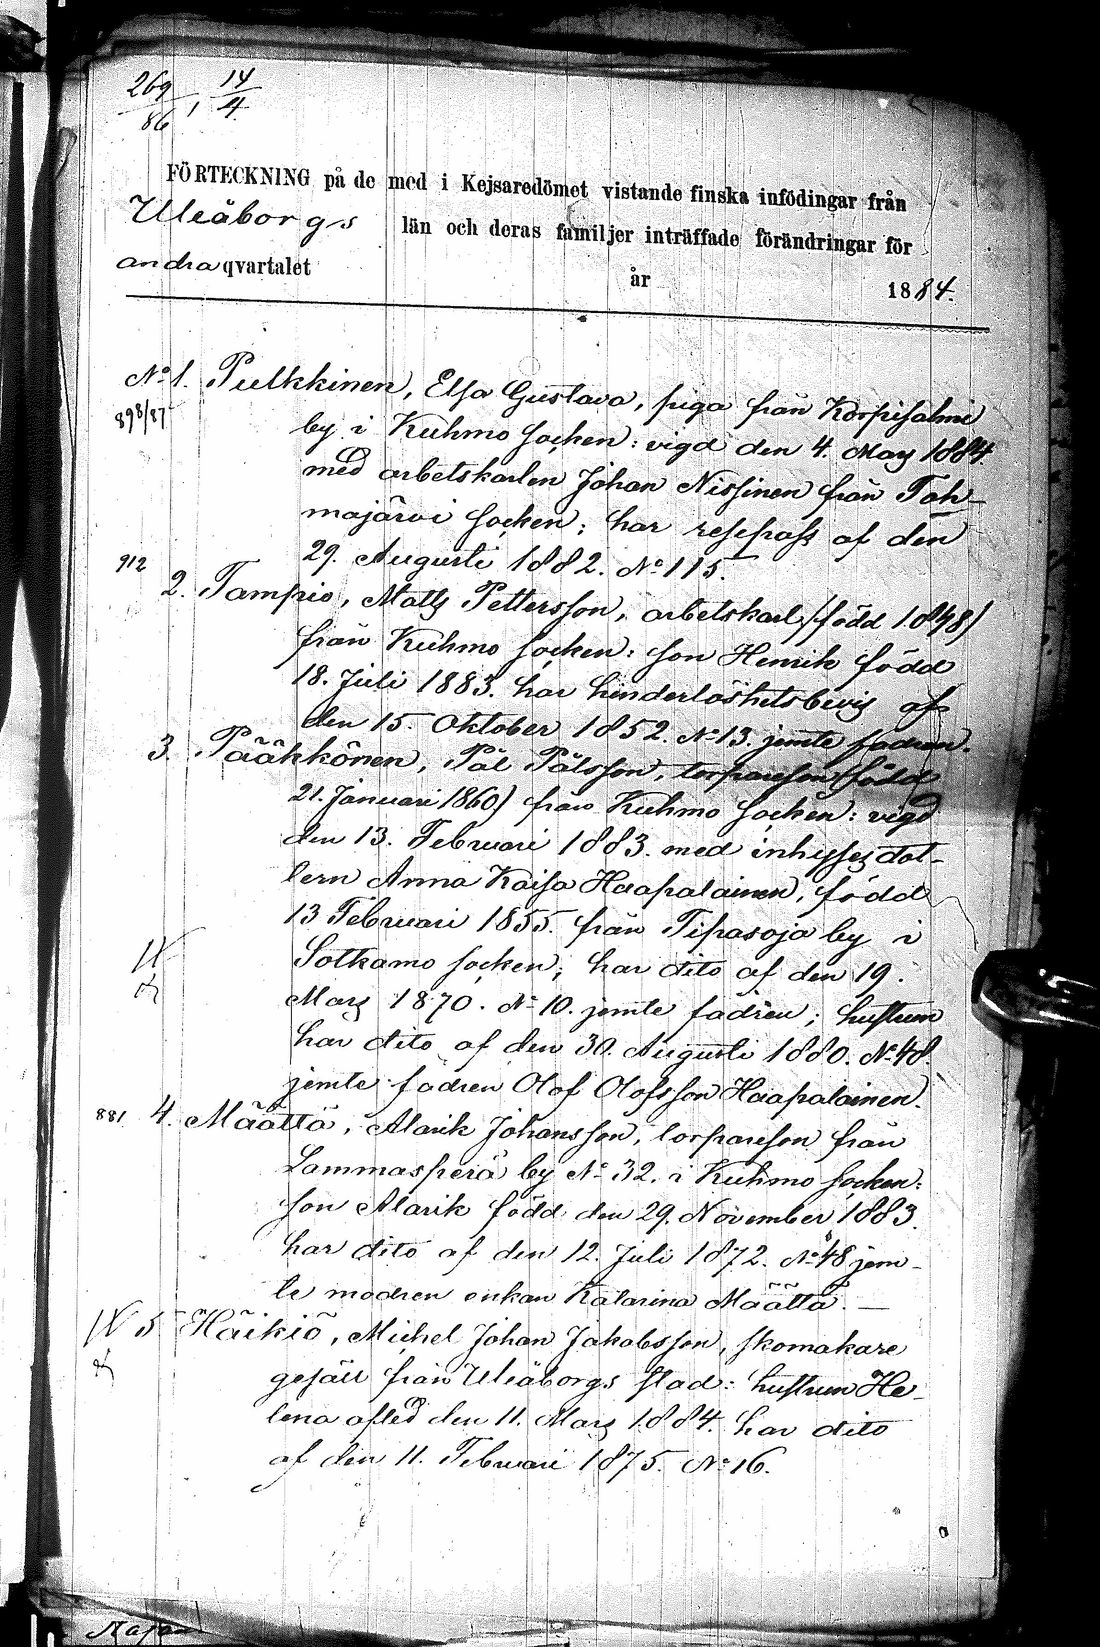 269/86, 14/4
FÖRTECKNING på de med i Kejsaredömet vistande finska infödingar från
Uleåborgs län och deras familjer inträffade förändringar för
andra qvartalet år 1884.
No 1. Pulkkinen, Elsa Gustava, piga från Korpisalmi
898/87
by i Kuhmo socken: vigd den 4. Mars 1884.
med arbetskarlen Johan Nissinen från Toh-
majärvi socken; har respass af den
29. Augusti 1882. No 115.
912
2. Tampio, Matts Pettersson, arbetskarl (född 1848)
från Kuhmo socken: son Henrik född
18. Juli 1883. har hinderlöshetsbevis af
den 15. Oktober 1852. No 13. jemte fadren.
3. Pääkkönen, Pål Pålsson, torpareson (född
21. Januari 1860) från Kuhmo socken: vigd
den 13. Februari 1883. med inhyses dot-
tern Anna Kaisa Haapalainen, född
13 Februari 1855. från Tipasoja by i
Sotkamo socken; har dito af den 19.
Mars 1870. No 10. jemte fadren; hustrun
har dito af den 30. Augusti 1880. No 48.
jemte fadren Olof Olofsson Haapalainen.
881 4. Määttä, Alarik Johansson, torpareson från
Lammasperä by No 32. i Kuhmo socken:
son Alarik född den 29. November 1883.
har dito af den 12. Juli 1872. No 48 jem-
te modren enkan Katarina Määttä. —
5 Häikiö, Michel Johan Jakobsson, skomakare
gesäll från Uleåborgs stad: hustrun He-
lena afled den 11. Mars 1884. har dito
af den 11. Februari 1875. No 16.